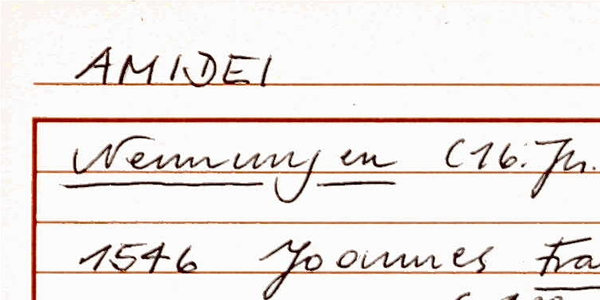 AMIDEI
Nennungen (16. Jh.
1546 Joannes Fra